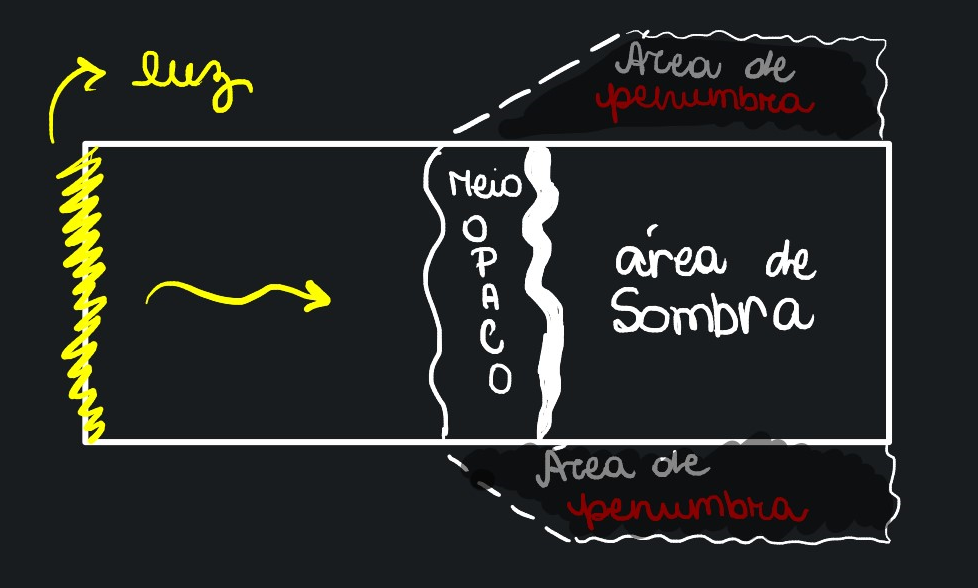 luz
Área de
penumbra
Meio
O
P
A
C
O
área de
Sombra
Área de
penumbra